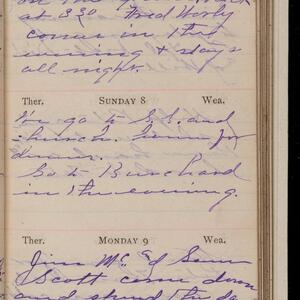 at 3 30 Fred Worly
comes in this
evening & stays
all night.
Ther. SUNDAY 8 Wea.
We go to S.S. and
church. Home for
dinner.
Go to Burchard
in the evening.
Ther. MONDAY 9 Wea.
Jim Mc &
Scott come down
and spend the